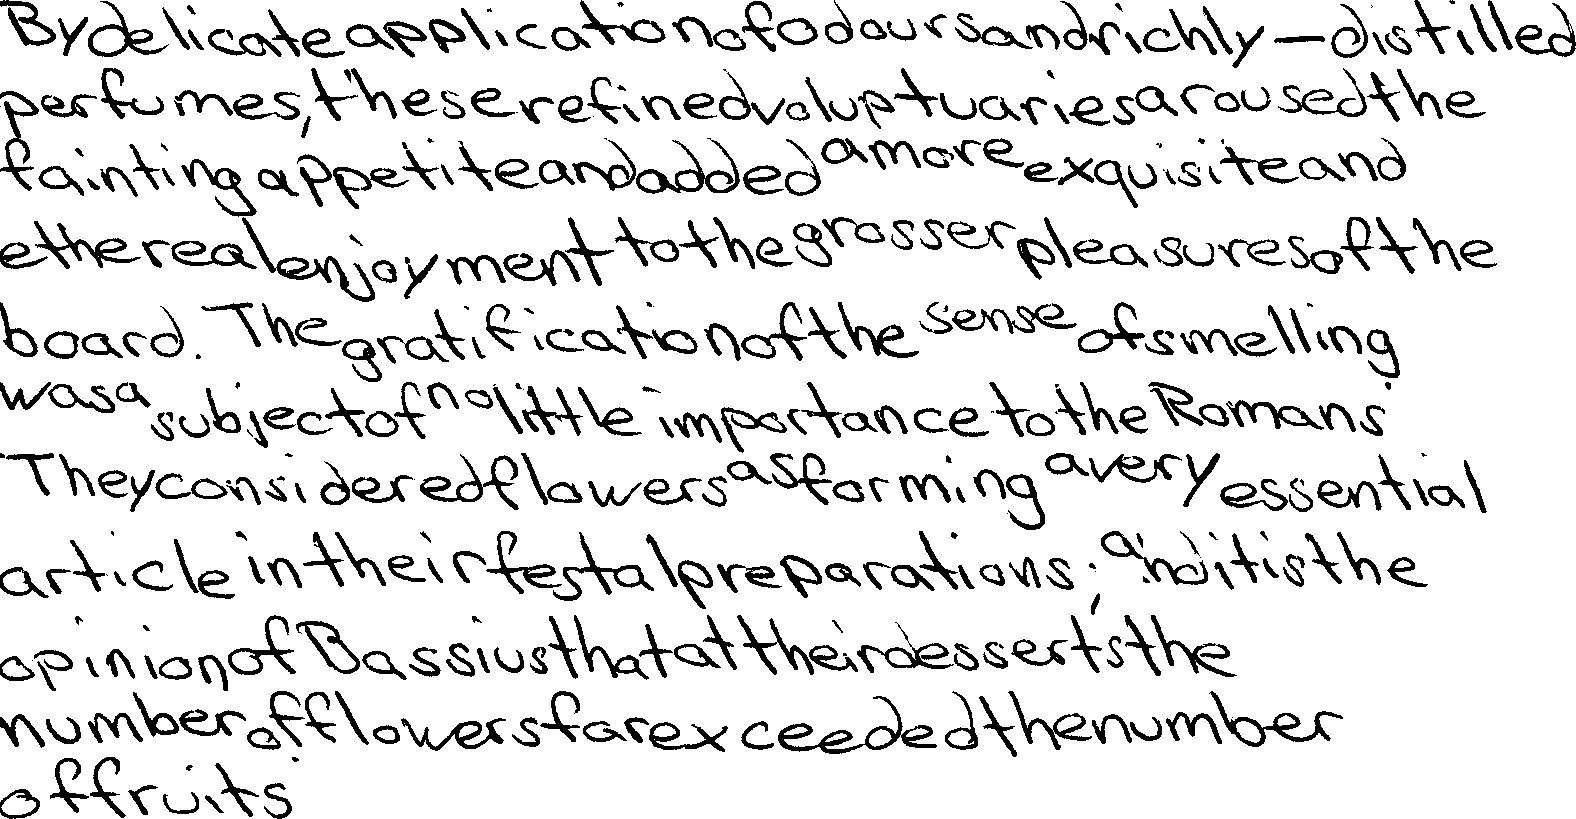 By delicate application of odours and richly-distilled
perfumes, these refined voluptuaries aroused the
fainting appetite and added a more exquisite and
ethereal enjoyment to the grosser pleasures of the
board. The gratification of the sense of smelling
was a subject of no little importance to the Romans.
They considered flowers as forming a very essential
article in their festal preparations; and it is the
opinion of Bassius that at their desserts the
number of flowers far exceeded the number
of fruits.